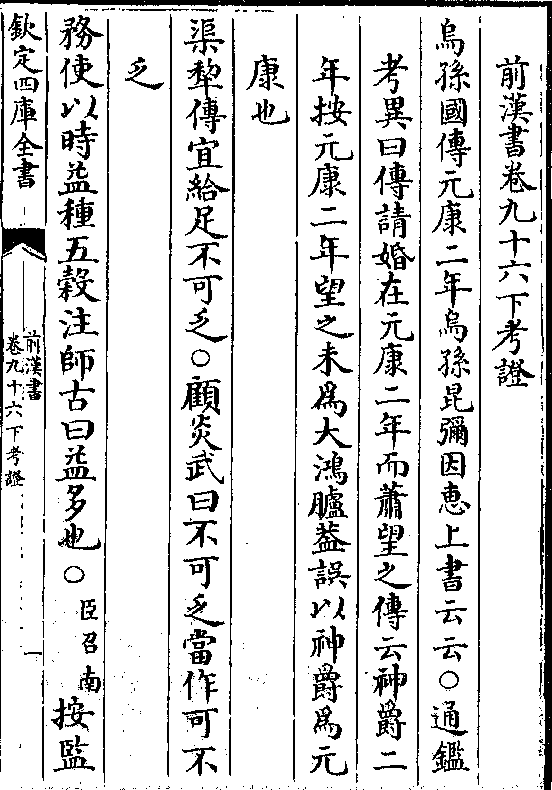 前漢書卷九十六下考證
烏孫國傳元康二年烏孫昆彌因惠上書云云○通鑑
考異曰傳請婚在元康二年而蕭望之傳云神爵二
年按元康二年望之未為大鴻臚葢誤以神爵為元
康也
渠犂傳宜給足不可乏○顧炎武曰不可乏當作可不
乏
務使以時益種五穀注師古曰益多也○臣召南按監
欽定四庫全書
前漢書
卷九十六下考證
一